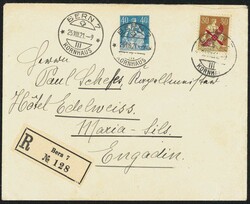 BERN 7
25.VIII.21.-9
III
KORNHAUS
40
Herrn
Paul Schefer
Hôtel Edelweiss.
Maria-Sils.
Engadin.
R
Bern 7
№ 128